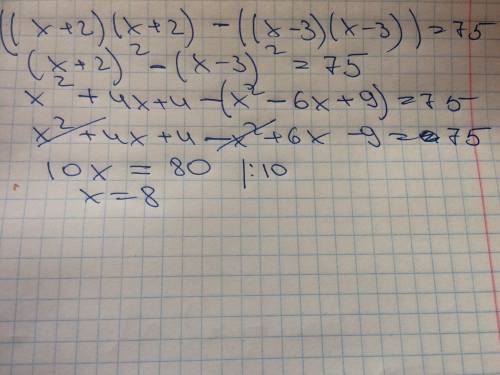 ((x+2)(x+2) - ((x-3)(x-3)) = 75
(x+2)² - (x-3)² = 75
x² + 4x + 4 - (x² - 6x + 9) = 75
x² + 4x + 4 - x² + 6x - 9 = 75
10x = 80 |:10
x = 8